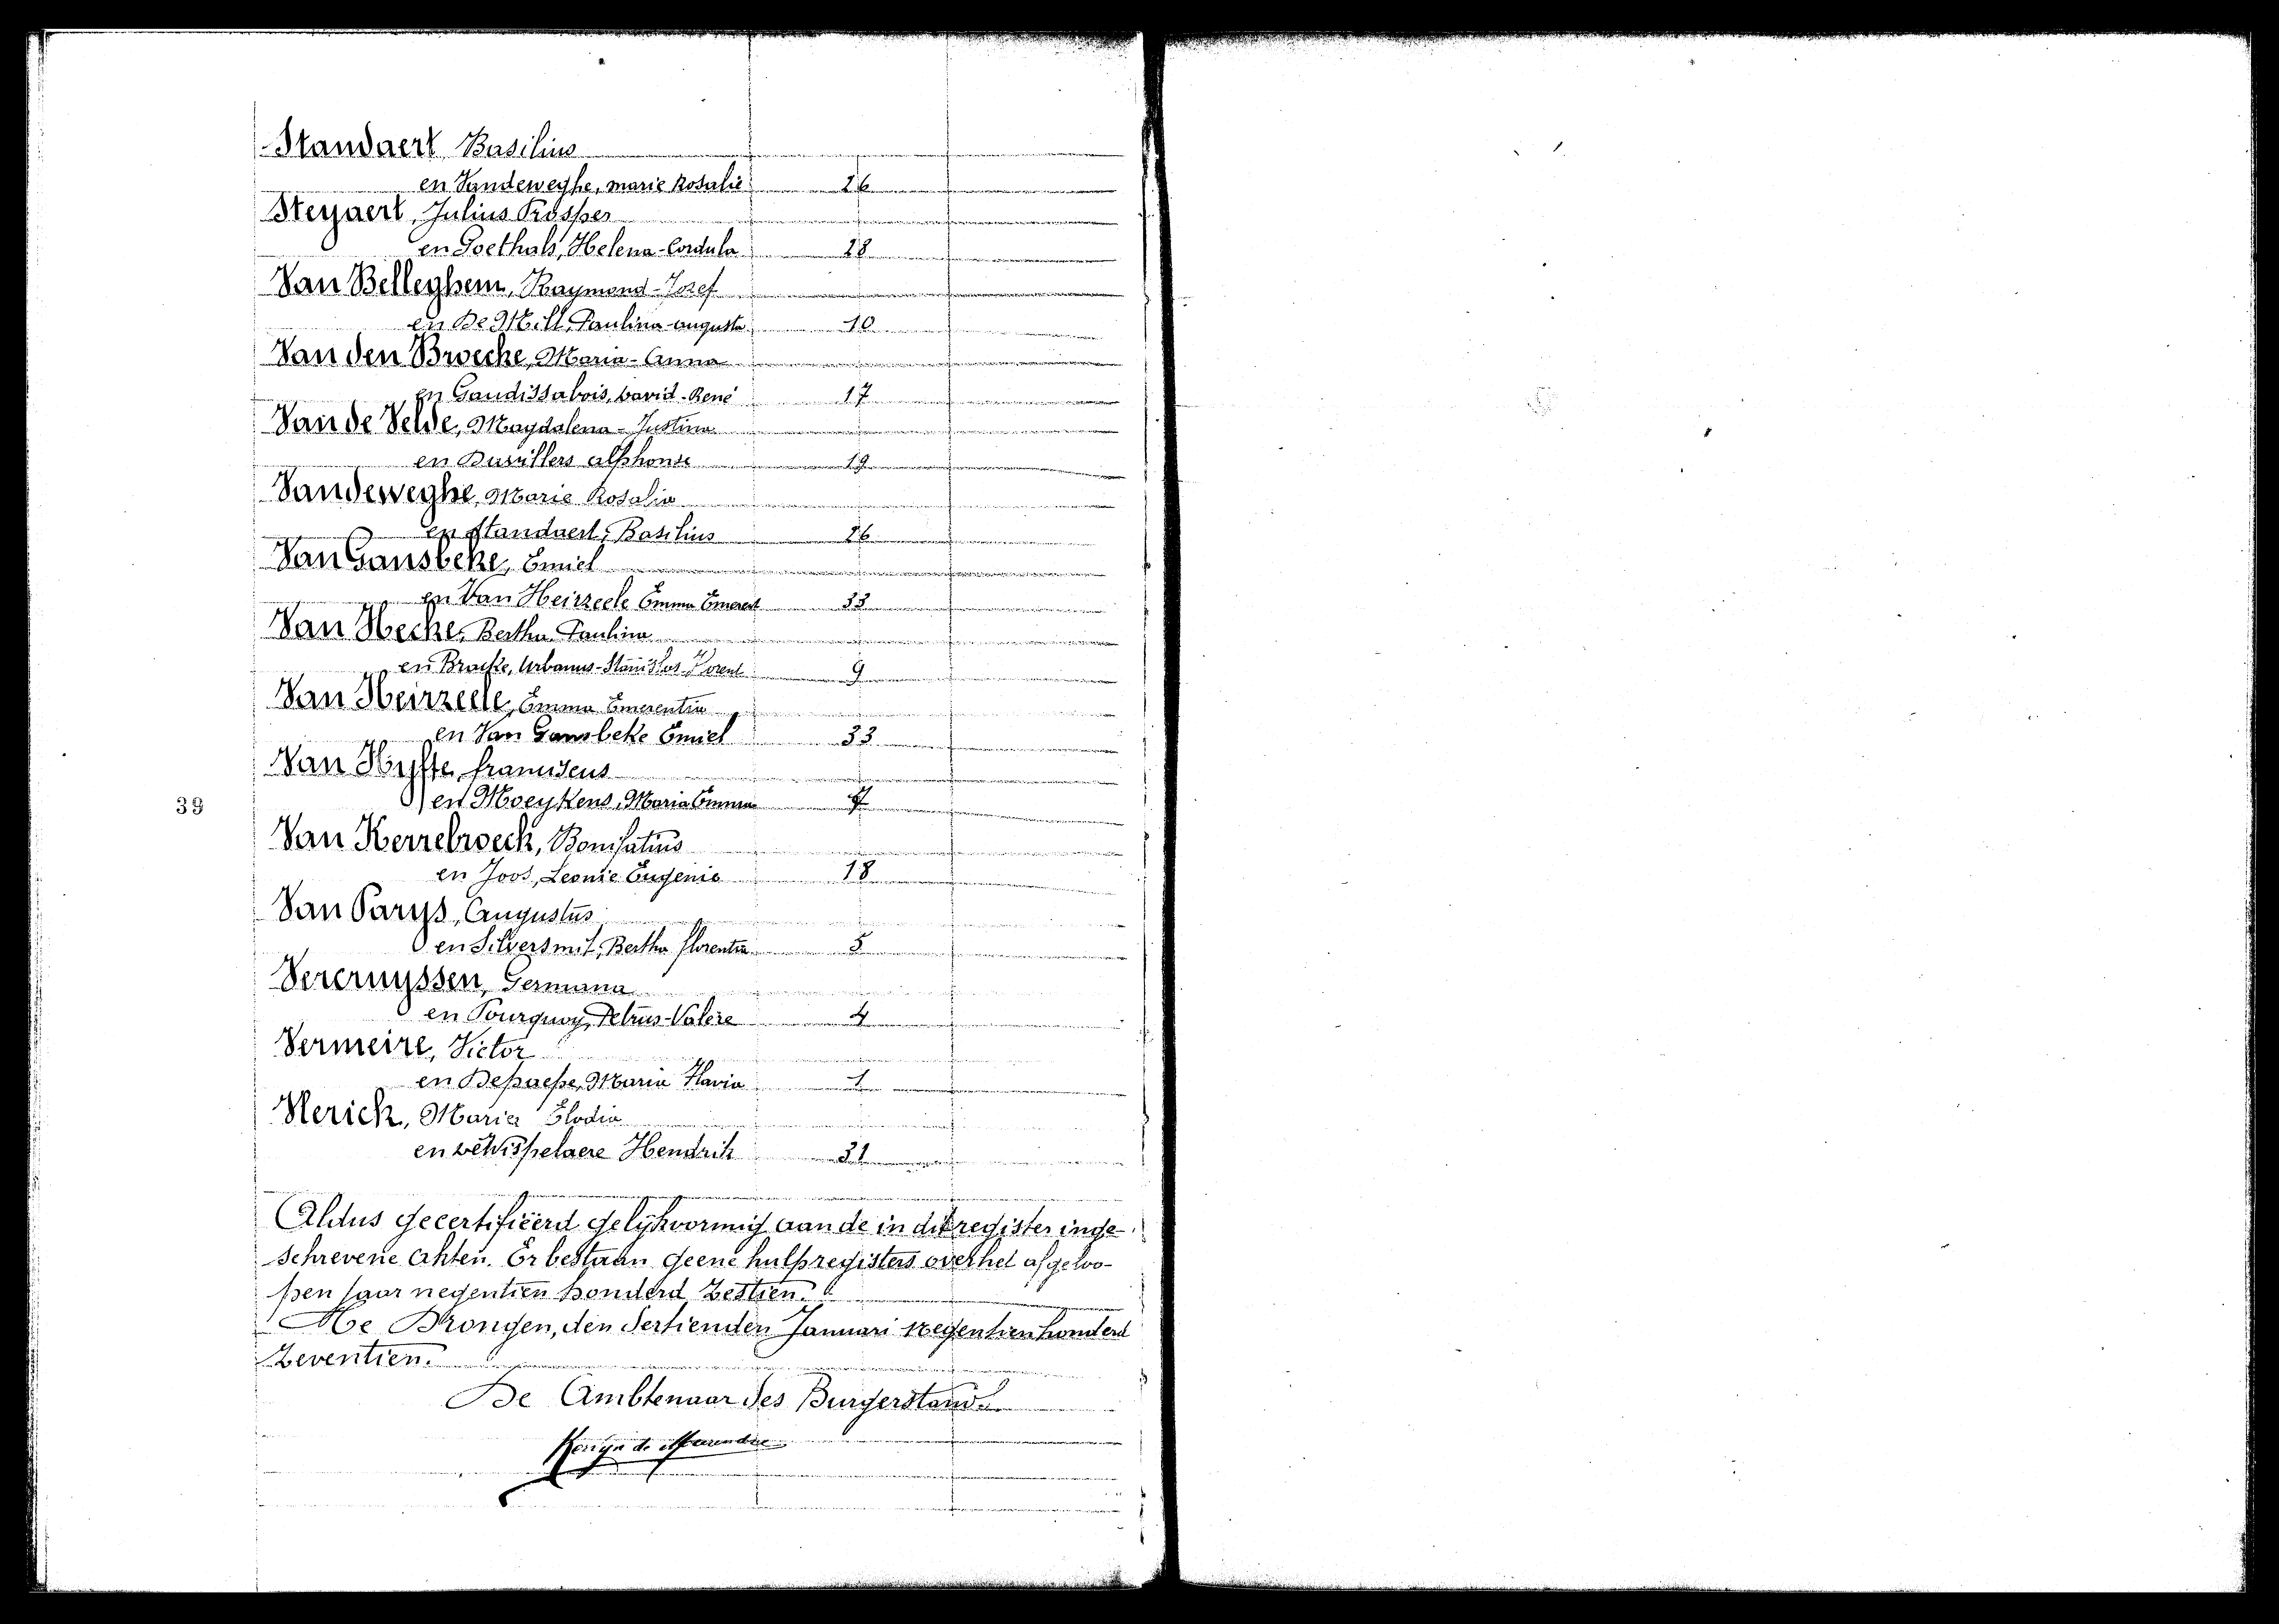 Standaert Basilius
en Vandeweghe, marie Rosalie 26
Steyaert, Julius Prosper
en Goethals, Helena-Cordula 28
Van Belleghem, Raymond-Jozef
en De Mill, Paulina augusta 10
Van den Broecke, Maria-Anna
en Gaudissabois, David-René 17
Van de Velde, Magdalena-Justina
en alphonse 19
Vandeweghe, Marie Rosalia
en Standaert, Basilius 26
Van Gansbeke, Emiel
en Van Heirzeele Emma Emerent 33
Van Hecke, Bertha Paulina
en Bracke, Urbanus-Stanislas-Florent 9
Van Heirzeele, Emma Emerentia
en Van Gansbeke Emiel 33
Van Hyfte, franciscus
en Moeykens, Maria Emma 7
39
Van Kerrebroeck, Bonifatius
en Joos, Leonie Eugenie 18
Van Parys, Augustus
en Silversmit, Bertha florentia 5
Vercruyssen, Germana
en Pourquoy, Petrus-Valere 4
Vermeire, Victor
en Depaepe, Maria Flavia 1
Vlerick, Maria Elodia
en DeWispelaere Hendrik 31
Aldus gecertifieerd gelijkvormig aan de in dit register inge-
schrevene akten. Er bestaan geene hulpregisters over het afgeloo-
pen jaar negentien honderd zestien.
Te Drongen, den dertienden Januari negentienhonderd
zeventien.
De Ambtenaar des Burgerstands